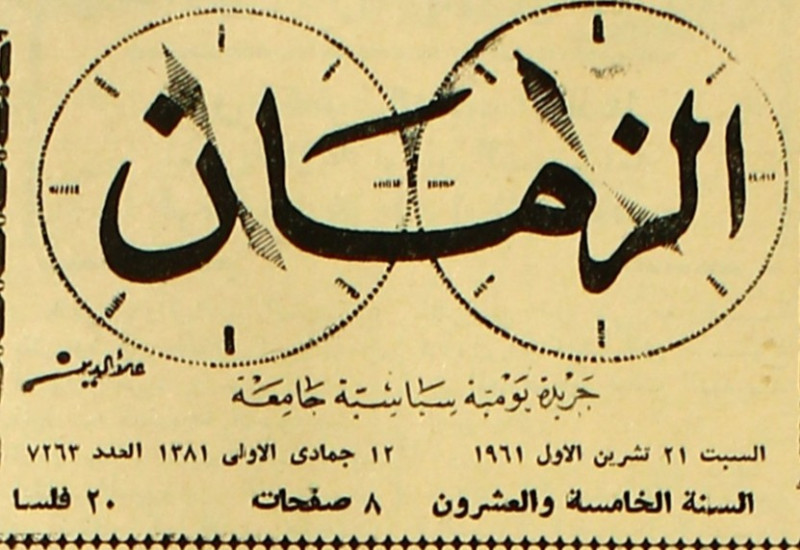 الزمان
علاءالدين
جريدة يومية سياسية جامعة
السبت ٢١ تشرين الاول ١٩٦١ ١٢ جمادى الاولى ١٣٨١ العدد ٧٢٦٣
السنة الخامسة والعشرون ٨ صفحات ٢٠ فلسا